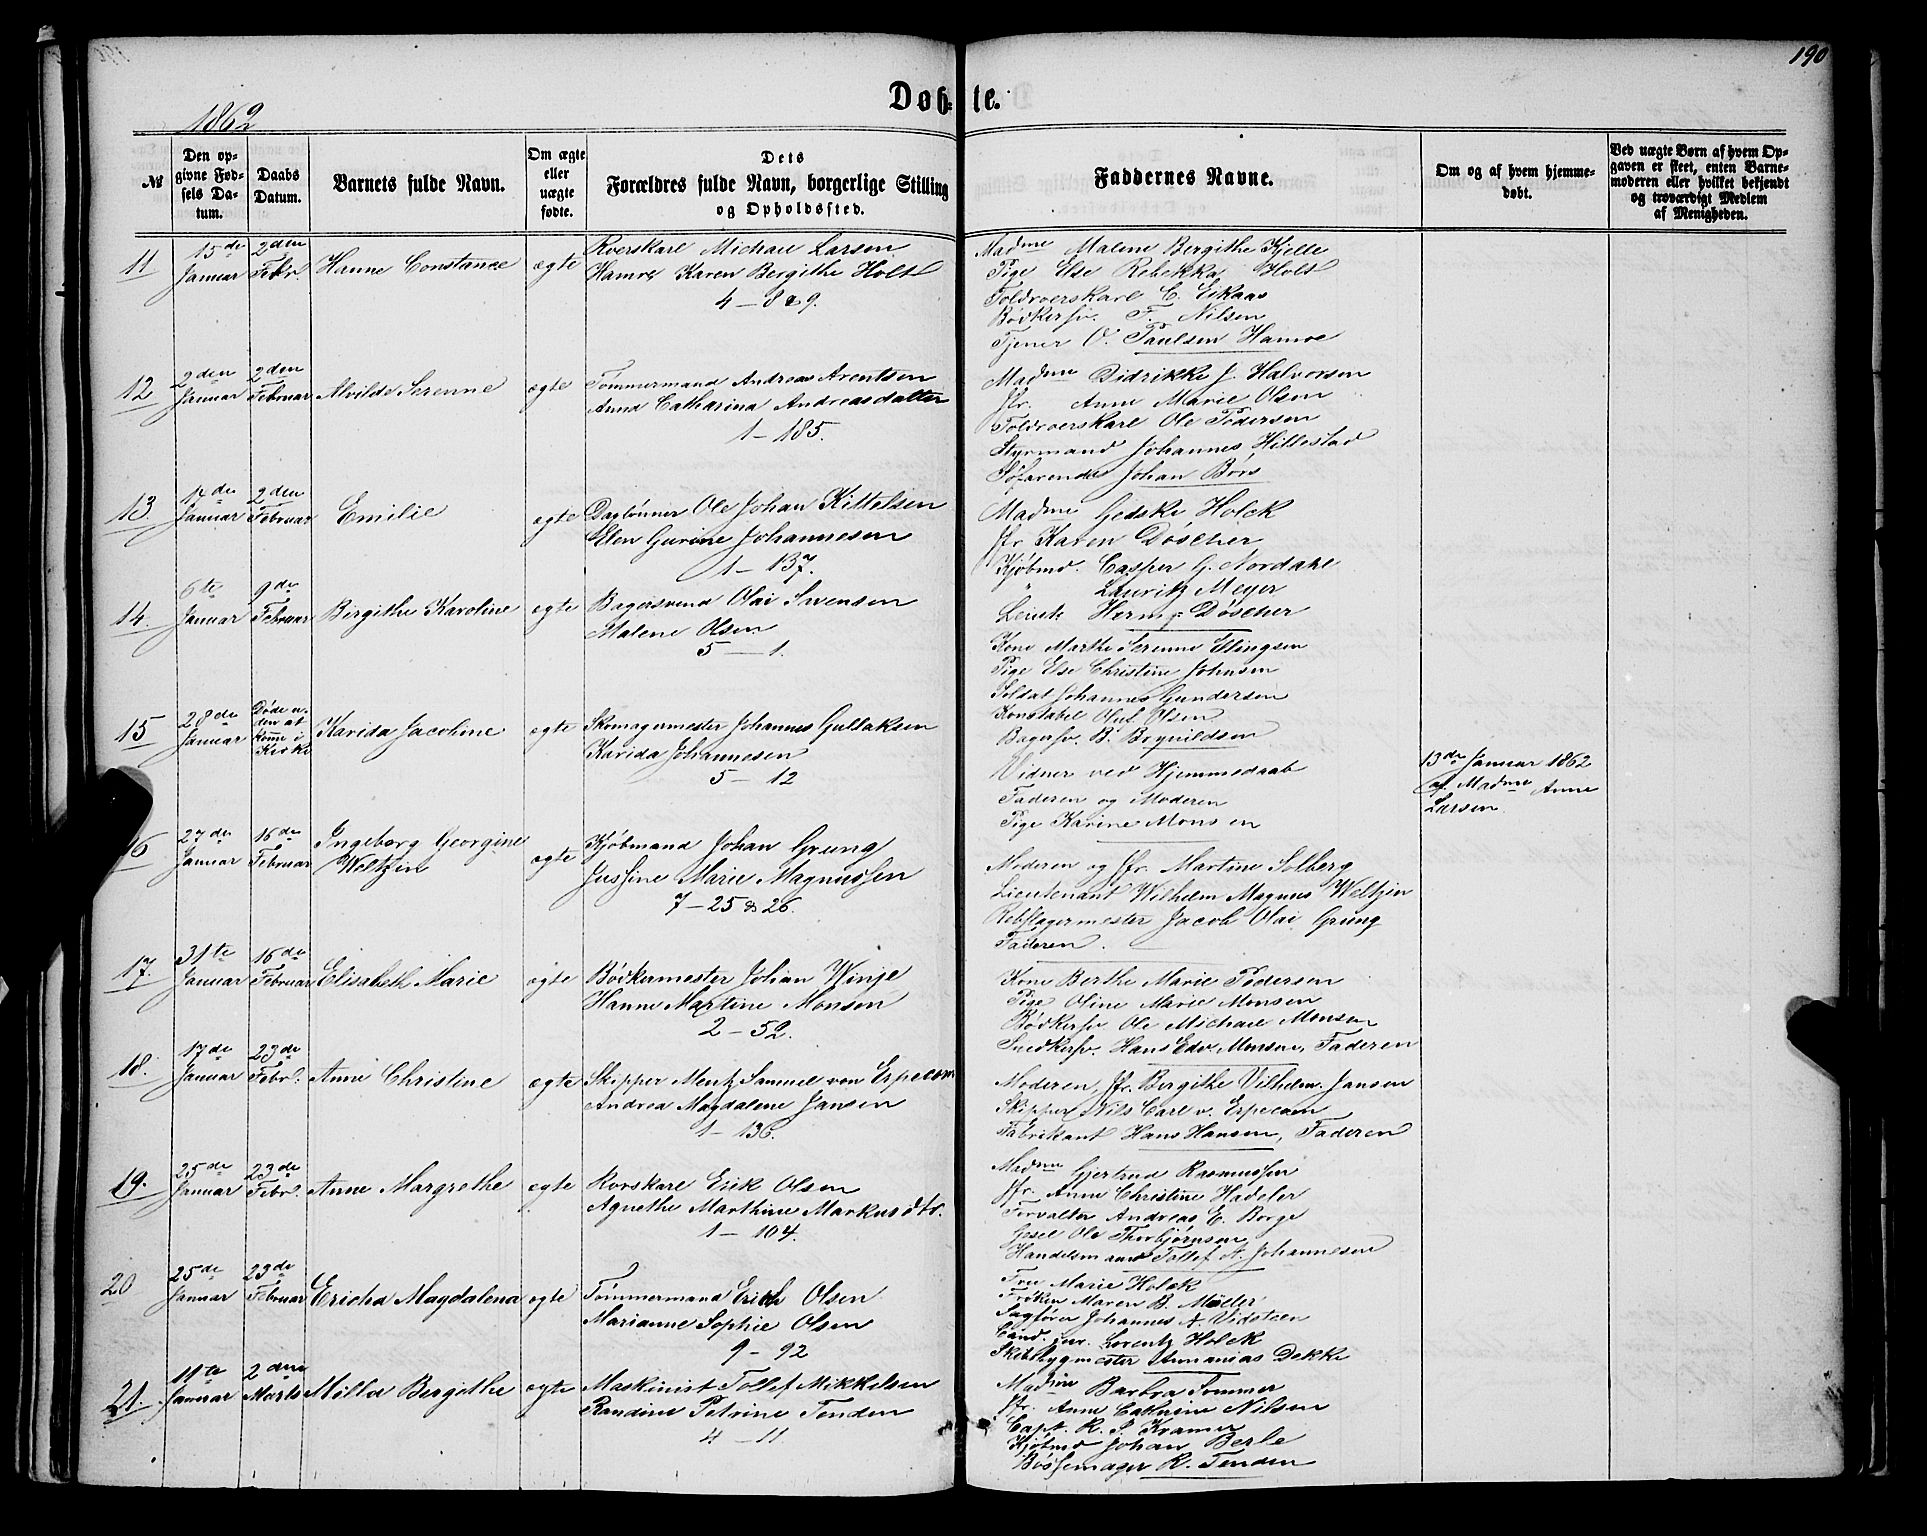 190
Døb-te.
1862
№
Den op-
givne Fød-
sels Da-
tum.
Daabs
Datum.
Barnets fulde Navn.
Om ægte
eller
uægte
fødte.
Dets
Forældres fulde Navn, borgerlige Stilling
og Opholdssted.
Faddernes Navne.
Om og af hvem hjemme-
døbt.
Ved uægte Børn af hvem Op-
gaven er skeet, enten Barne-
moderen eller hvilket bekjendt
og troværdigt Medlem
af Menigheden.
11
15de
Januar
2den
Febr.
Hanne Constance
ægte
Roerskarl Michael Larsen
Hamre Karen Bergithe Holst
4 – 8 & 9.
Madme Malene Bergithe Kjelle
Pige Else Rebekka Holst
Toldroerskarl C. Eikaas
Bødkersv. F. Nilsen
Tjener O. Paulsen Hamre
12
2den
Januar
2den
Februar
Alvilde Serenne
ægte
Tømmermand Andreas Arentsen
Anna Catharina Andreasdatter
1 – 185.
Madme Didrikke J. Halvorsen
Jfr. Anne Marie Olsen
Toldroerskarl Ole Pedersen
Styrmand Johannes Hillestad
Søfarende Johan Bors
13.
14de
Januar
2den
Februar
Emilie
ægte
Daglønner Ole Johan Kittelsen
Elen Gurine Johannesen
1 – 137.
Madme Gedske Holck
Jfr Karen Døscher
Kjøbmd. Casper G. Nordahl
" Lauritz Meyer
Leint. Herm. Døscher
14.
6te
Januar
9de
Februar
Birgithe Karoline
ægte
Bagersvend Olai Svensen
Malene Olsen
5 – 1.
Kone Marthe Serenne Ellingsen
Pige Else Christine Johnsen
Soldat Johannes Gundersen
Konstabel Oluf Olsen
Bagersv. B. Brynildsen
15
28de
Januar
Døde u-
den at
komme i
Kirke
Karida Jacobine
ægte
Skomagermester Johannes Gullaksen
Karida Johannesen
5 – 12
Vidner ved Hjemmedaab
Faderen og Moderen
Pige Karine Monsen
13de Januar 1862
af Madme Anne
Larsen
16
27de
Januar
16de
Februar
Ingeborg Georgine
Weltzin
ægte
Kjøbmand Johan Grung
Jussine Marie Magnussen
7 – 25 & 26.
Moderen og Jfr. Martine Solberg
Lieutenant Wilhelm Magnus Weltzin
Rebslagermester Jacob Olai Grung
Faderen.
17.
31te
Januar
16de
Februar
Elisabeth Marie
ægte
Bødkermester Johan Winje
Hanne Martine Monsen
2 – 52.
Kone Berthe Marie Pedersen
Pige Oline Marie Monsen
Bødkersv Ole Michael Monsen
Snedkersv. Hans Edv. Monsen, Faderen
18.
17de
Januar
23de
Febr.
Anne Christine
ægte
Skipper Mentz Samuel von Erpecom
Andrea Magdalene Jansen
1 – 136.
Moderen, Jfr. Bergithe Vilhelm. Jansen
Skipper Nils Carl v. Erpecom
Fabrikant Hans Hansen, Faderen
19.
25de
Januar
23de
Febr.
Anne Margrethe
ægte
Rorskarl Erik Olsen
Agnethe Marthine Markusdtr.
1 – 104.
Madme Gjertrud Rasmussen
Jfr. Anne Christine Hadeler
Forvalter Andreas E. Borge
Gesel Ole Thorbjørnsen
Handelsmand Tollef A. Johannesen
20
25de
Januar
23de
Februar
Ericha Magdalena
ægte
Tømmermand Erich Olsen
Marianne Sophie Olsen
9 – 92
Fru Marie Holck
Frøken Maren B. Møller
Sagfører Johannes A. Vidsteen
Cand. jur. Lorentz Holck
Skibsbygmester Annanias Dekke
21.
19te
Januar
2den
Marts
Milla Bergithe
ægte
Maskinist Tollef Mikkelsen
Randine Petrine Tenden
4 – 11
Madme Barbra Sommer
Jfr. Anne Cathrine Nilsen
Capt. R. S. Kramer
Kjøbmd Johan Berle
Bøssemager R. Tenden